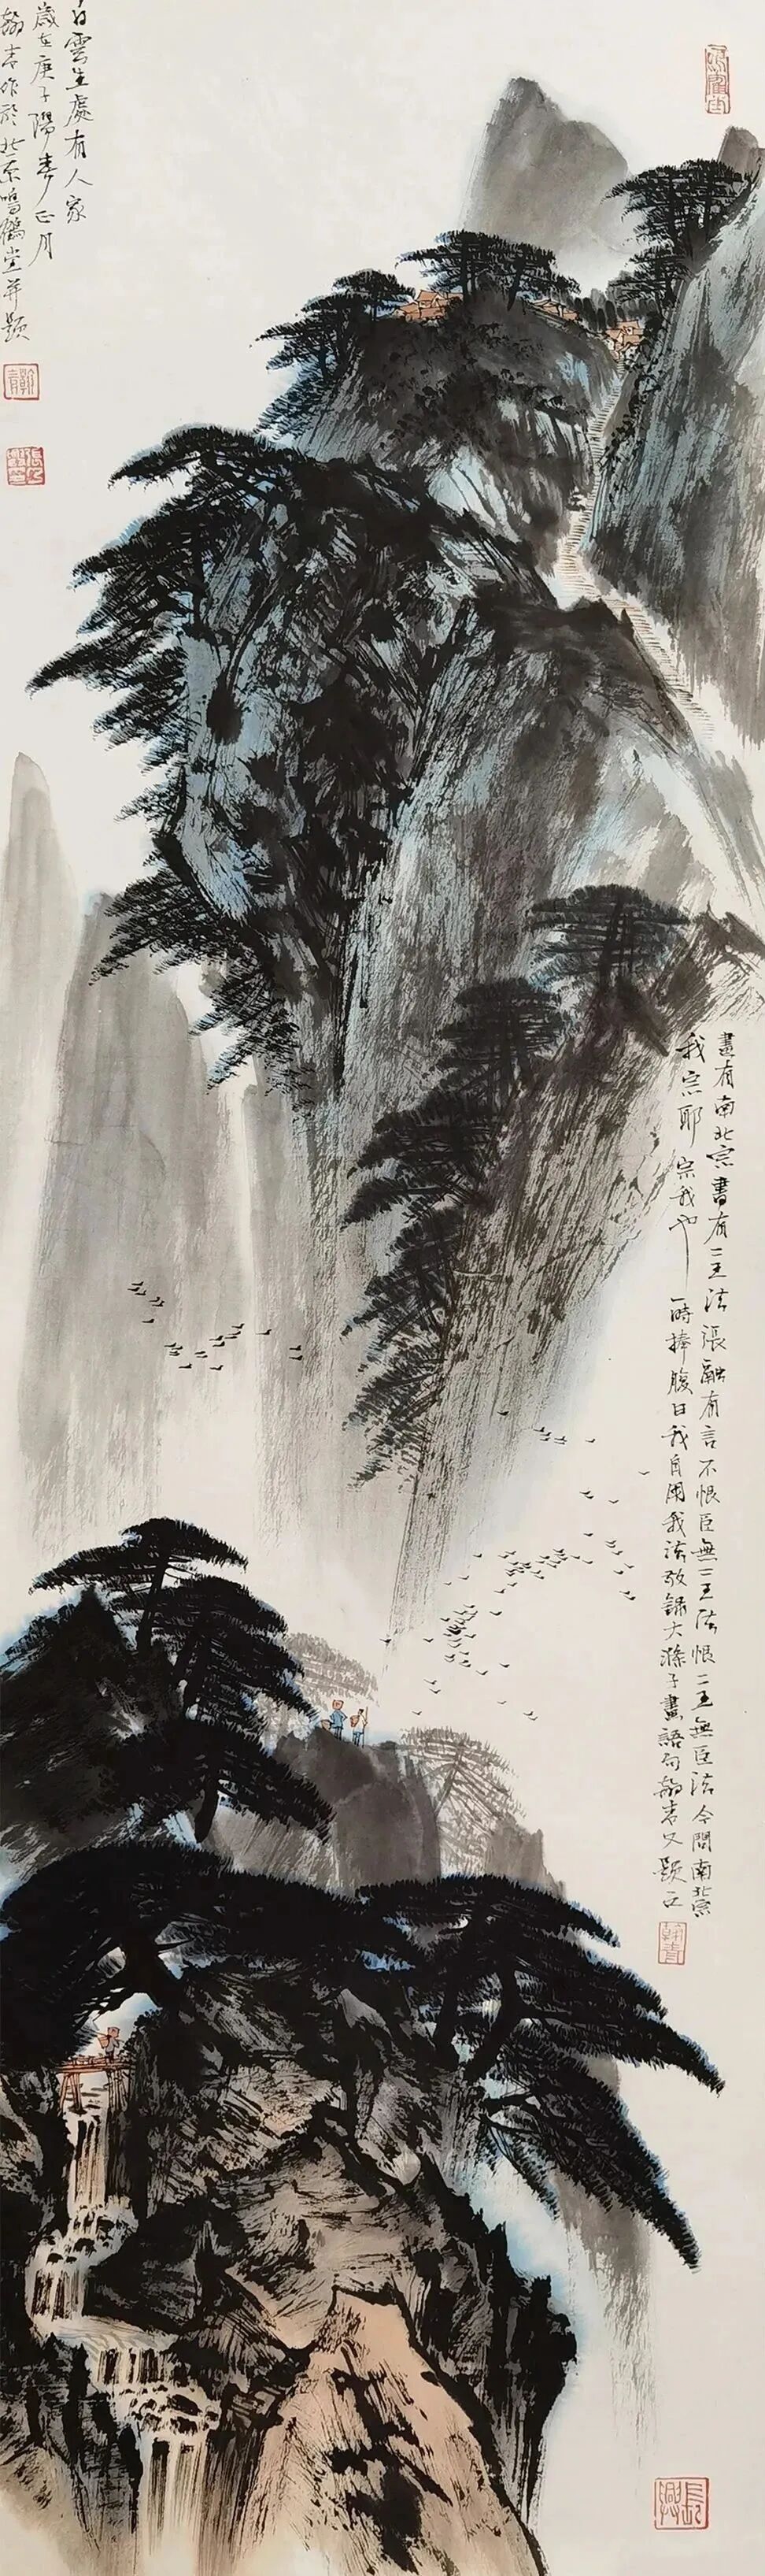 白雲生處有人家
歲在庚子陽春正月
翰青作於北京鳴鶴堂并題
畫有南北宗書有二王法張融有言不恨臣無二王法恨二王無臣法今問南北宗
我宗耶宗我也一時捧腹曰我自用我法敬錄大滌子畫語句翰青又題之
翰青